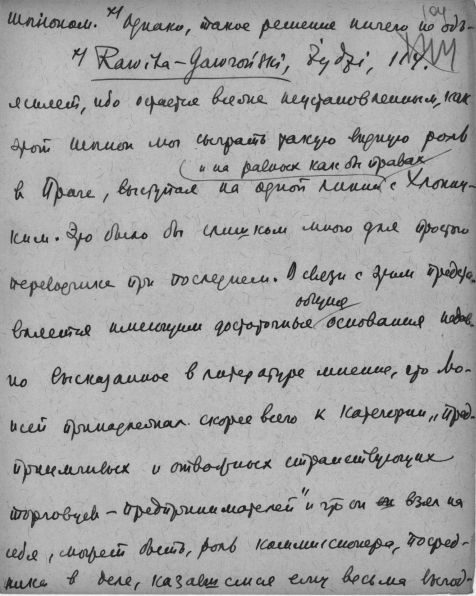 шпионом. *) Однако, такое решение ничего не объ-
*) Rawita-Gawroński, Żydzi, 114.
ясняет, ибо остается вполне неустановленным, как
этот шпион мог сыграть такую видную роль
и на равных как бы правах
в Праге, выступая на одной линии с Хлопиц-
ким. Это было бы слишком много для простого
переводчика при последнем. В связи с этим представ-
общие
вляется имеющим достаточные основания недав-
но высказанное в литературе мнение, что Мо-
исей принадлежал скорее всего к категории „пред-
приимчивых и отважных странствующих
торговцев-предпринимателей" и что он взял на
себя, может быть, роль коммиссионера, посред-
ника в деле, казавшемся ему весьма выгод-